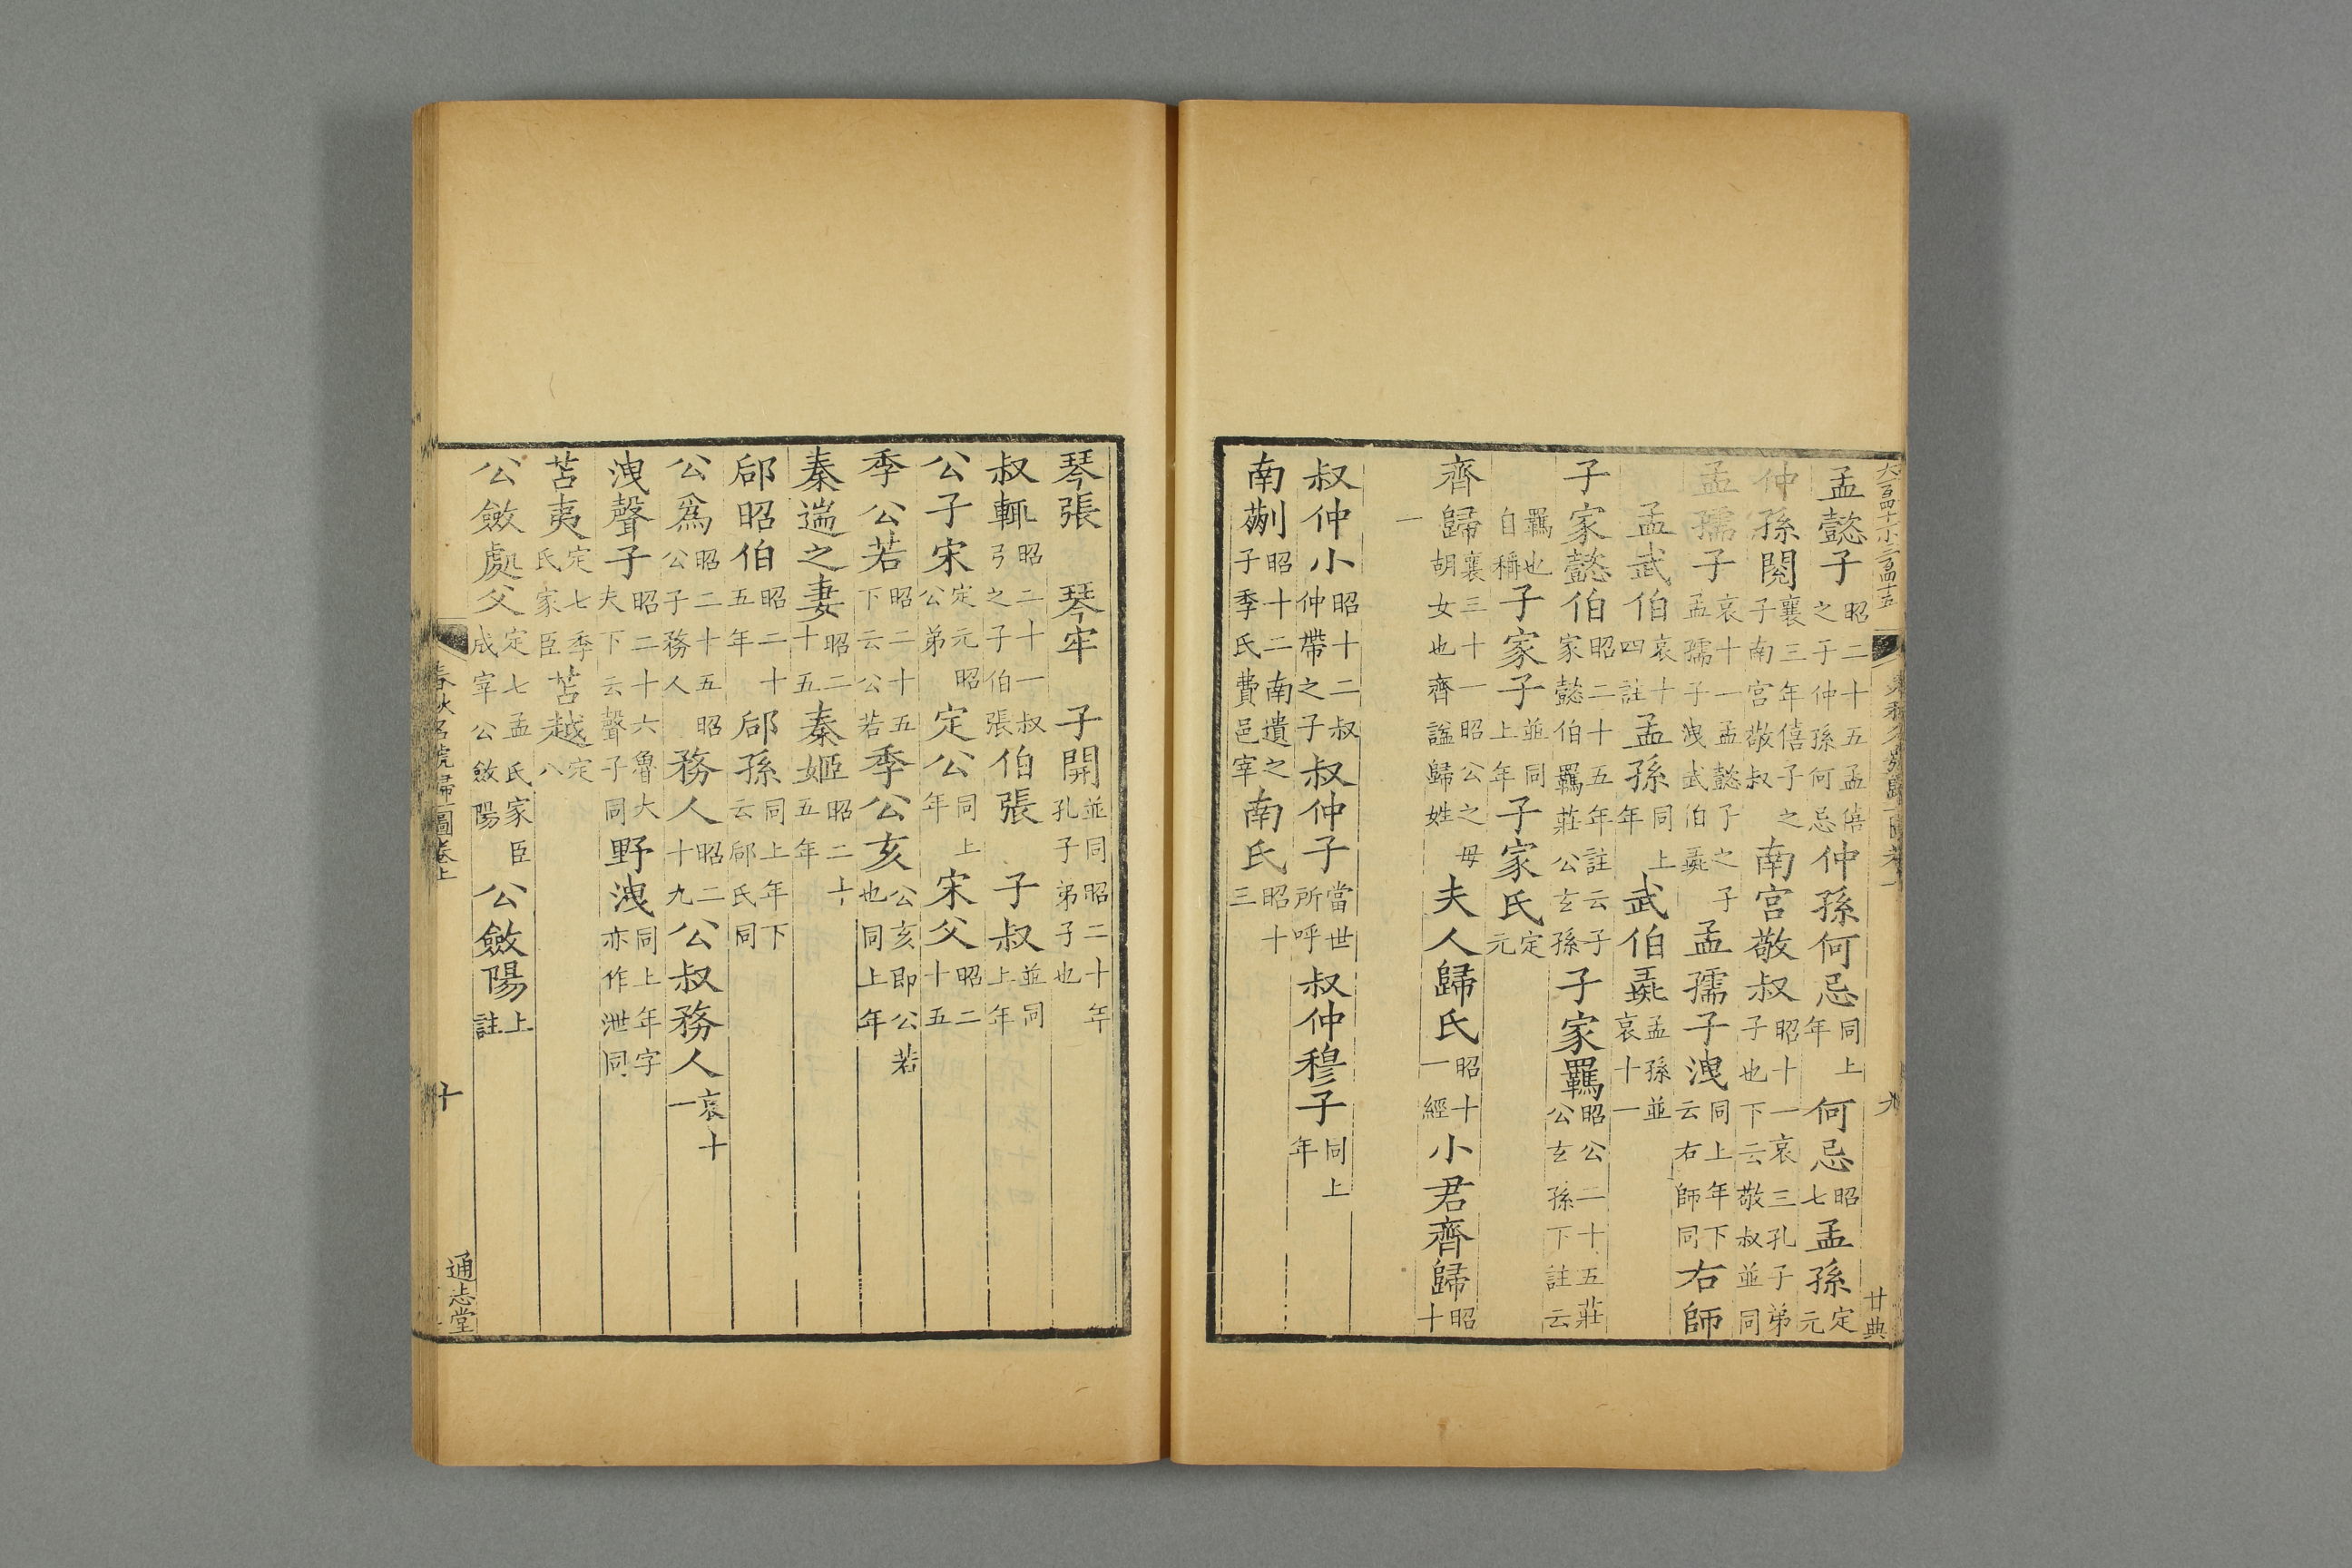 孟懿子昭二十五孟僖之子仲孫何忌仲孫何忌同上年何忌昭七孟孫定元
仲孫閱襄三年僖子之子南宮敬叔南宮敬叔昭十一哀三孔子弟子也下云敬叔並同
孟孺子哀十一孟懿子之子孟孺子洩武伯彘孟孺子洩同上年下云右師同右師
孟武伯哀十四註孟孫同上年武伯彘孟孫並哀十一
子家懿伯昭二十五年註云子家懿伯羈莊公玄孫子家羈昭公二十五莊公玄孫下註云
羈也自稱子家子並同上年子家氏定元
齊歸襄三十一昭公之母胡女也齊謚歸姓夫人歸氏昭十一經小君齊歸昭十
一
叔仲小昭十二叔仲帶之子叔仲子當世所呼叔仲穆子同上年
南蒯昭十二南遺之子季氏費邑宰南氏昭十三
琴張 琴牢 子開並同昭二十年孔子弟子也
叔輒昭二十一叔弓之子伯張伯張 子叔並同上年
公子宋定元昭公弟 昭定公同上年宋父昭二十五
季公若昭二十五下云公若季公亥公亥即公若也同上年
秦遄之妻昭二十五秦姬昭二十五年
郈昭伯昭二十五年郈孫同上年下云郈氏同
公為昭二十五昭公子務人務人昭二十九公叔務人哀十一
洩聲子昭二十六魯大夫下云聲子同野洩同上年字亦作泄同
苫夷定七季氏家臣苫越定八
公斂處父定七孟氏家臣成宰公斂陽公斂陽上註
春秋名號歸一圖卷上
十
通志堂